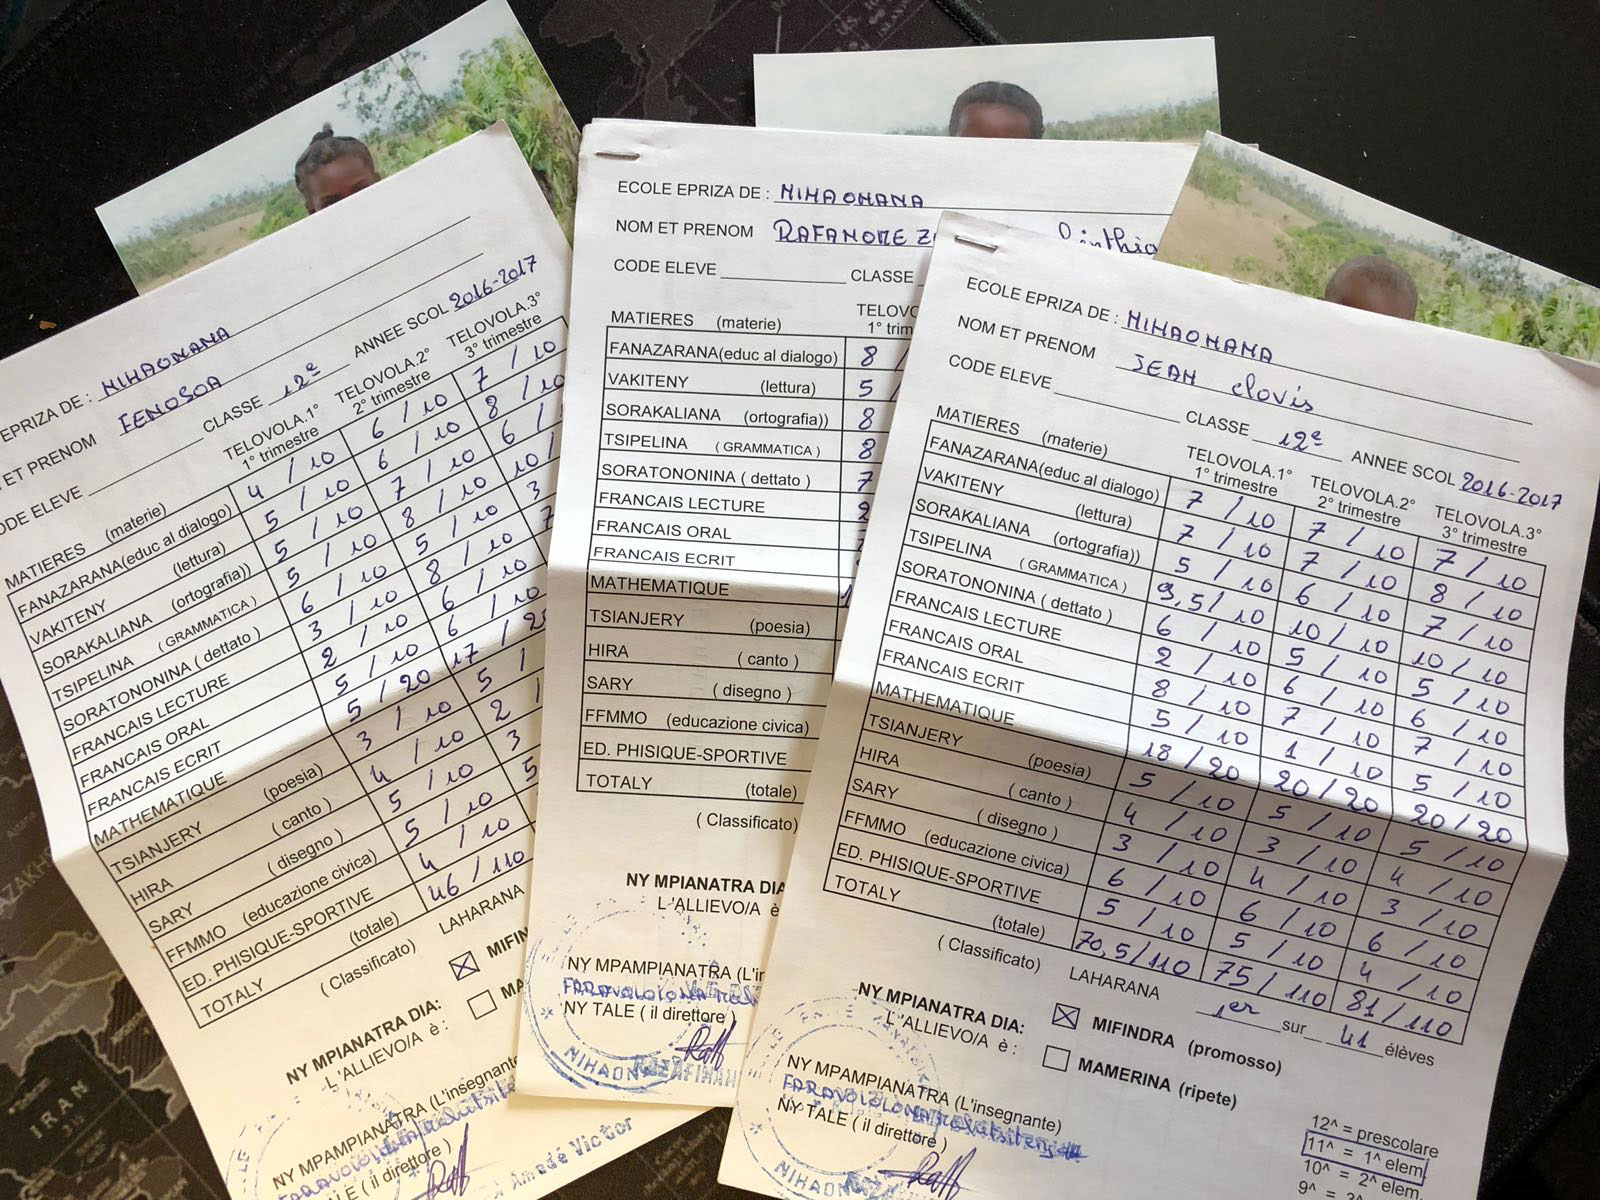 EPRIZA DE : MIHAONANA
ET PRENOM FENOSOA
CODE ELEVE CLASSE 12e ANNEE SCOL 2016-2017
MATIERES (materie) TELOVOLA.1° 1° trimestre TELOVOLA.2° 2° trimestre TELOVOLA.3° 3° trimestre
FANAZARANA(educ al dialogo) 4 / 10 6 / 10 7 / 10
VAKITENY (lettura) 5 / 10 6 / 10 8 / 10
SORAKALIANA (ortografia)) 5 / 10 7 / 10 6 /
TSIPELINA (GRAMMATICA) 5 / 10 8 / 10 10 /
SORATONONINA ( dettato ) 6 / 10 5 / 10 3
FRANCAIS LECTURE 3 / 10 8 / 10 7
FRANCAIS ORAL 2 / 10 6 / 10
FRANCAIS ECRIT 5 / 10 6 / 10
MATHEMATIQUE 5 / 20 17 / 20
TSIANJERY (poesia) 3 / 10 5 /
HIRA ( canto ) 4 / 10 2 /
SARY ( disegno ) 5 / 10 3
FFMMO (educazione civica) 5 / 10 5
ED. PHISIQUE-SPORTIVE 4 / 10
TOTALY (totale) 46 / 110
( Classificato) LAHARANA
NY MPIANATRA DIA: ☒ MIFIN
L'ALLIEVO/A è : ☐ MA
NY MPAMPIANATRA (L'insegnante
NY TALE ( il direttore )
Amedé Victor
ECOLE EPRIZA DE : MIHAONANA
NOM ET PRENOM RAFANOMEZ Cinthia
CODE ELEVE CLASSE
MATIERES (materie) TELOVO 1° trim
FANAZARANA(educ al dialogo) 8 /
VAKITENY (lettura) 5
SORAKALIANA (ortografia)) 8
TSIPELINA ( GRAMMATICA ) 8
SORATONONINA ( dettato ) 7
FRANCAIS LECTURE 2
FRANCAIS ORAL
FRANCAIS ECRIT
MATHEMATIQUE 1
TSIANJERY (poesia)
HIRA ( canto )
SARY ( disegno )
FFMMO (educazione civica)
ED. PHISIQUE-SPORTIVE
TOTALY (totale)
( Classificato)
NY MPIANATRA DIA
L'ALLIEVO/A è
NY MPAMPIANATRA (L'in
NY TALE ( il direttore )
MIHAONA
ECOLE EPRIZA DE : MIHAONANA
NOM ET PRENOM JEAN Clovis
CODE ELEVE CLASSE 12e ANNEE SCOL 2016-2017
MATIERES (materie) TELOVOLA.1° 1° trimestre TELOVOLA.2° 2° trimestre TELOVOLA.3° 3° trimestre
FANAZARANA(educ al dialogo) 7 / 10 7 / 10 7 / 10
VAKITENY (lettura) 7 / 10 7 / 10 8 / 10
SORAKALIANA (ortografia)) 5 / 10 6 / 10 7 / 10
TSIPELINA ( GRAMMATICA ) 9,5/ 10 10 / 10 10 / 10
SORATONONINA ( dettato ) 6 / 10 5 / 10 5 / 10
FRANCAIS LECTURE 2 / 10 6 / 10 6 / 10
FRANCAIS ORAL 8 / 10 7 / 10 7 / 10
FRANCAIS ECRIT 5 / 10 1 / 10 5 / 10
MATHEMATIQUE 18 / 20 20 / 20 20 / 20
TSIANJERY (poesia) 5 / 10 5 / 10 5 / 10
HIRA ( canto ) 4 / 10 3 / 10 4 / 10
SARY ( disegno ) 3 / 10 4 / 10 3 / 10
FFMMO (educazione civica) 6 / 10 6 / 10 6 / 10
ED. PHISIQUE-SPORTIVE 5 / 10 5 / 10 4 / 10
TOTALY (totale) 70,5/110 75 / 110 81 / 110
( Classificato) LAHARANA 1er sur 41 élèves
NY MPIANATRA DIA: ☒ MIFINDRA (promosso)
L'ALLIEVO/A è : ☐ MAMERINA (ripete)
NY MPAMPIANATRA (L'insegnante)
NY TALE ( il direttore )
MIHAONA
12^ = prescolare
11^ = 1^ elem
10^ = 2^ elem
9^ = 3^
IRAN